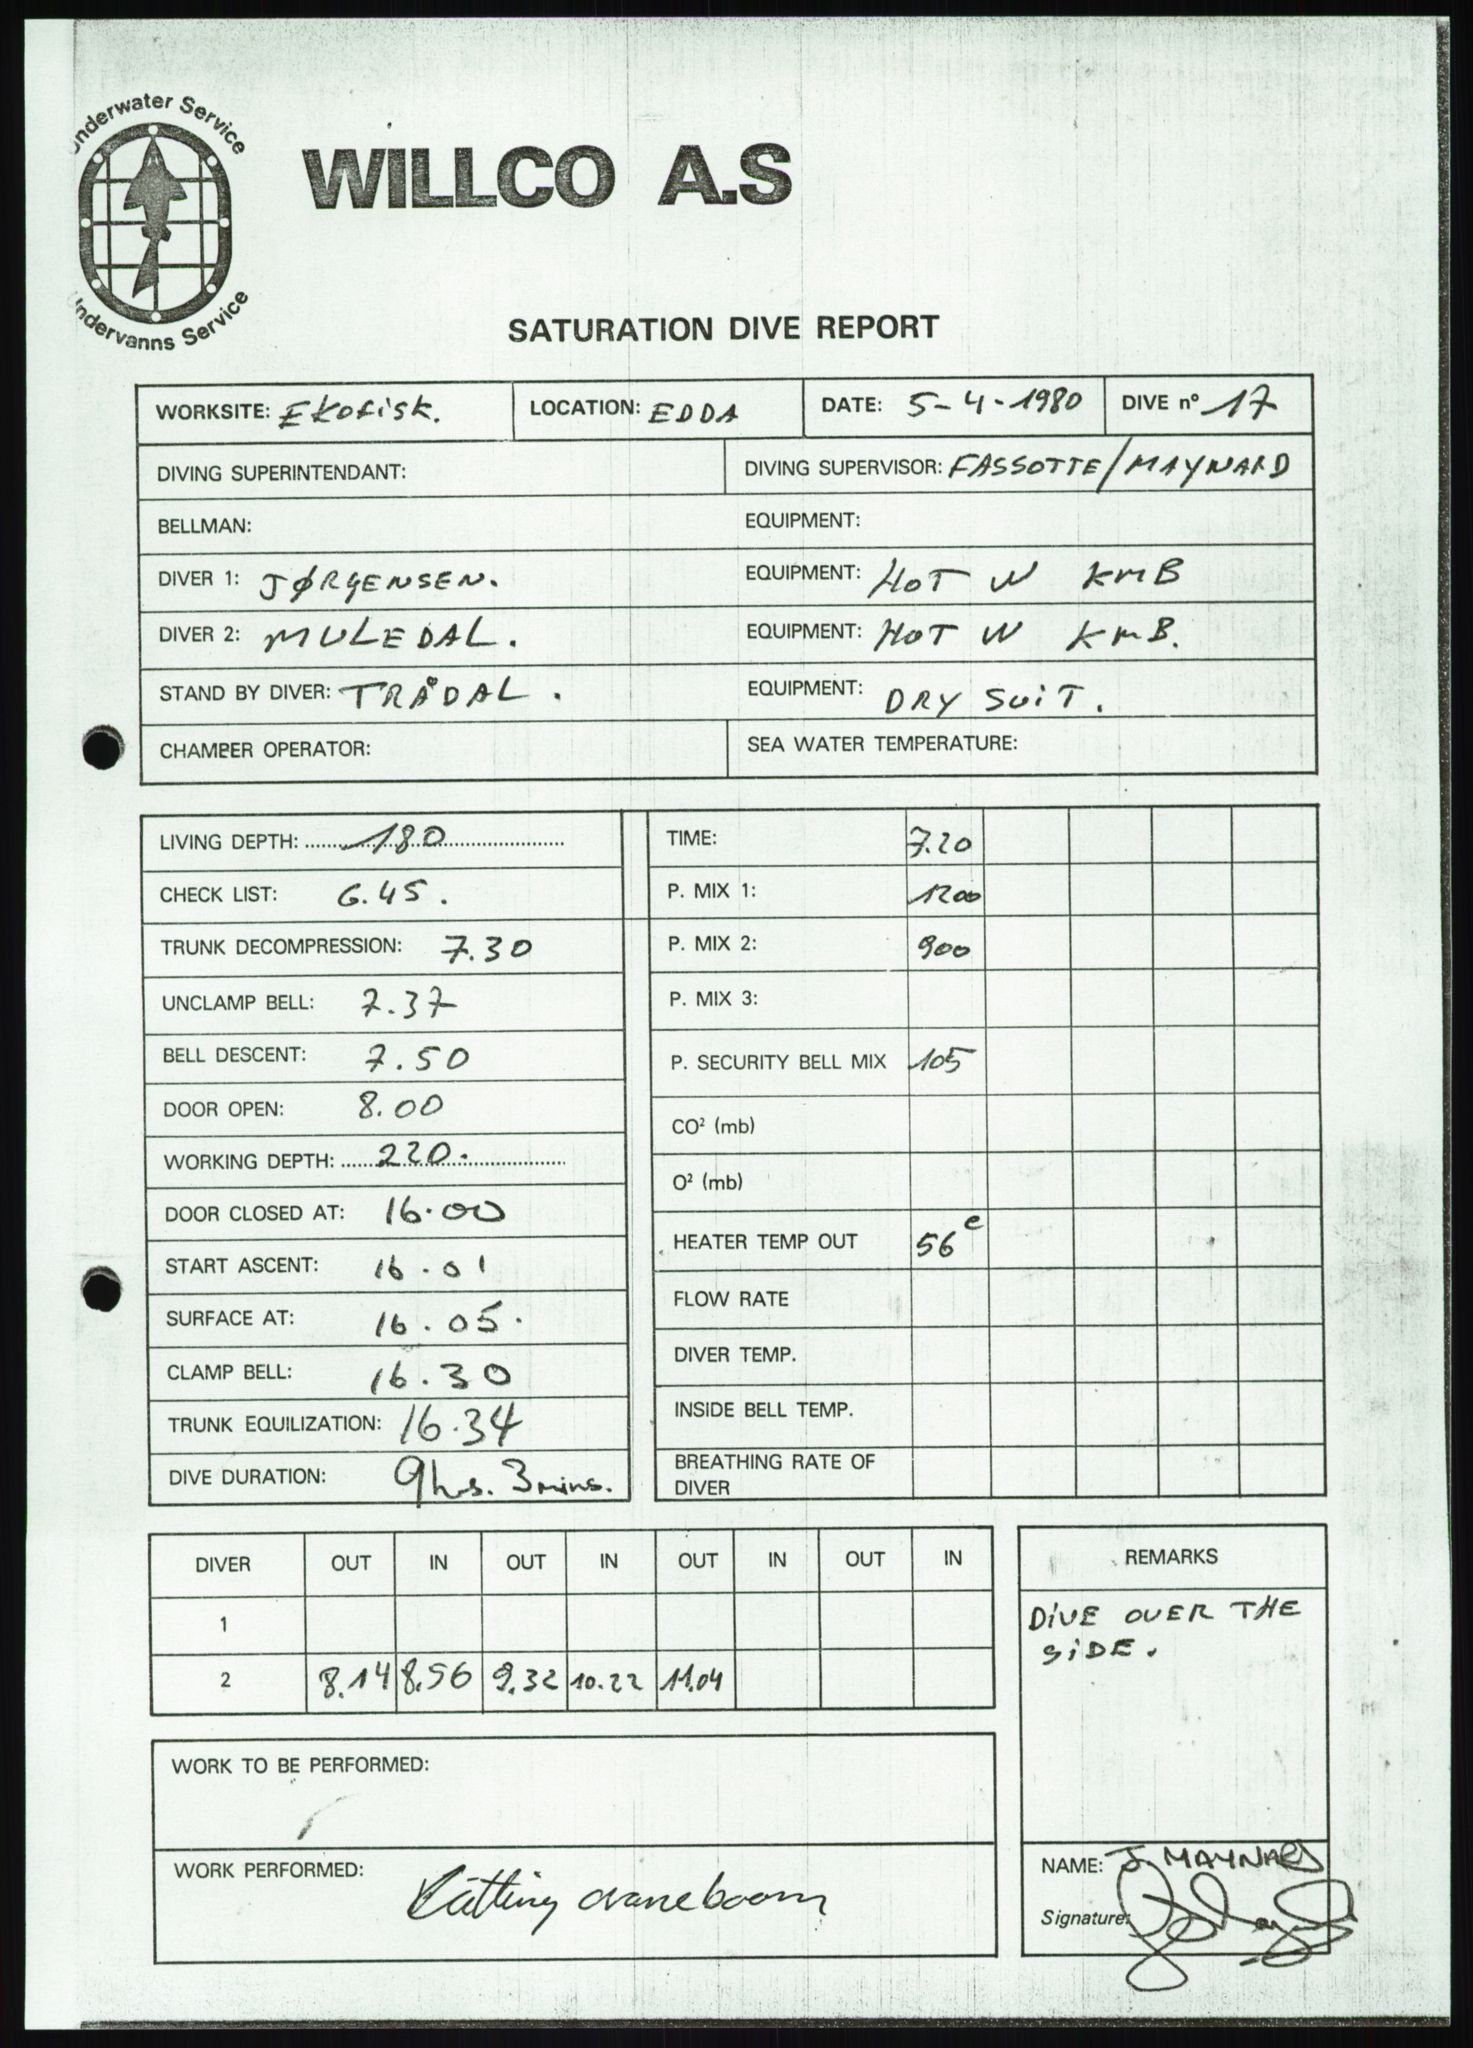 Underwater Service
WILLCO A.S
Undervanns Service
SATURATION DIVE REPORT
WORKSITE: EKOFISK. LOCATION: EDDA DATE: 5-4-1980 DIVE n° 17
DIVING SUPERINTENDANT: DIVING SUPERVISOR: FASSOTTE/MAYNARD
BELLMAN: EQUIPMENT:
DIVER 1: JØRGENSEN. EQUIPMENT: HOT W KMB
DIVER 2: MULEDAL. EQUIPMENT: HOT W KMB.
STAND BY DIVER: TRÅDAL. EQUIPMENT: DRY SUIT.
CHAMBER OPERATOR: SEA WATER TEMPERATURE:
LIVING DEPTH: 180
CHECK LIST: 6.45.
TRUNK DECOMPRESSION: 7.30
UNCLAMP BELL: 7.37
BELL DESCENT: 7.50
DOOR OPEN: 8.00
WORKING DEPTH: 220.
DOOR CLOSED AT: 16.00
START ASCENT: 16.01
SURFACE AT: 16.05.
CLAMP BELL: 16.30
TRUNK EQUILIZATION: 16.34
DIVE DURATION: 9hrs. 3mins.
TIME: 7.20
P. MIX 1: 1200
P. MIX 2: 900
P. MIX 3:
P. SECURITY BELL MIX 105
CO² (mb)
O² (mb)
HEATER TEMP OUT 56 c
FLOW RATE
DIVER TEMP.
INSIDE BELL TEMP.
BREATHING RATE OF
DIVER
DIVER OUT IN OUT IN OUT IN OUT IN
1
2 8.14 8.56 9.32 10.22 11.04
REMARKS
DIVE OVER THE
SIDE.
WORK TO BE PERFORMED:
WORK PERFORMED: Cutting crane boom
NAME: J. MAYNARD
Signature: